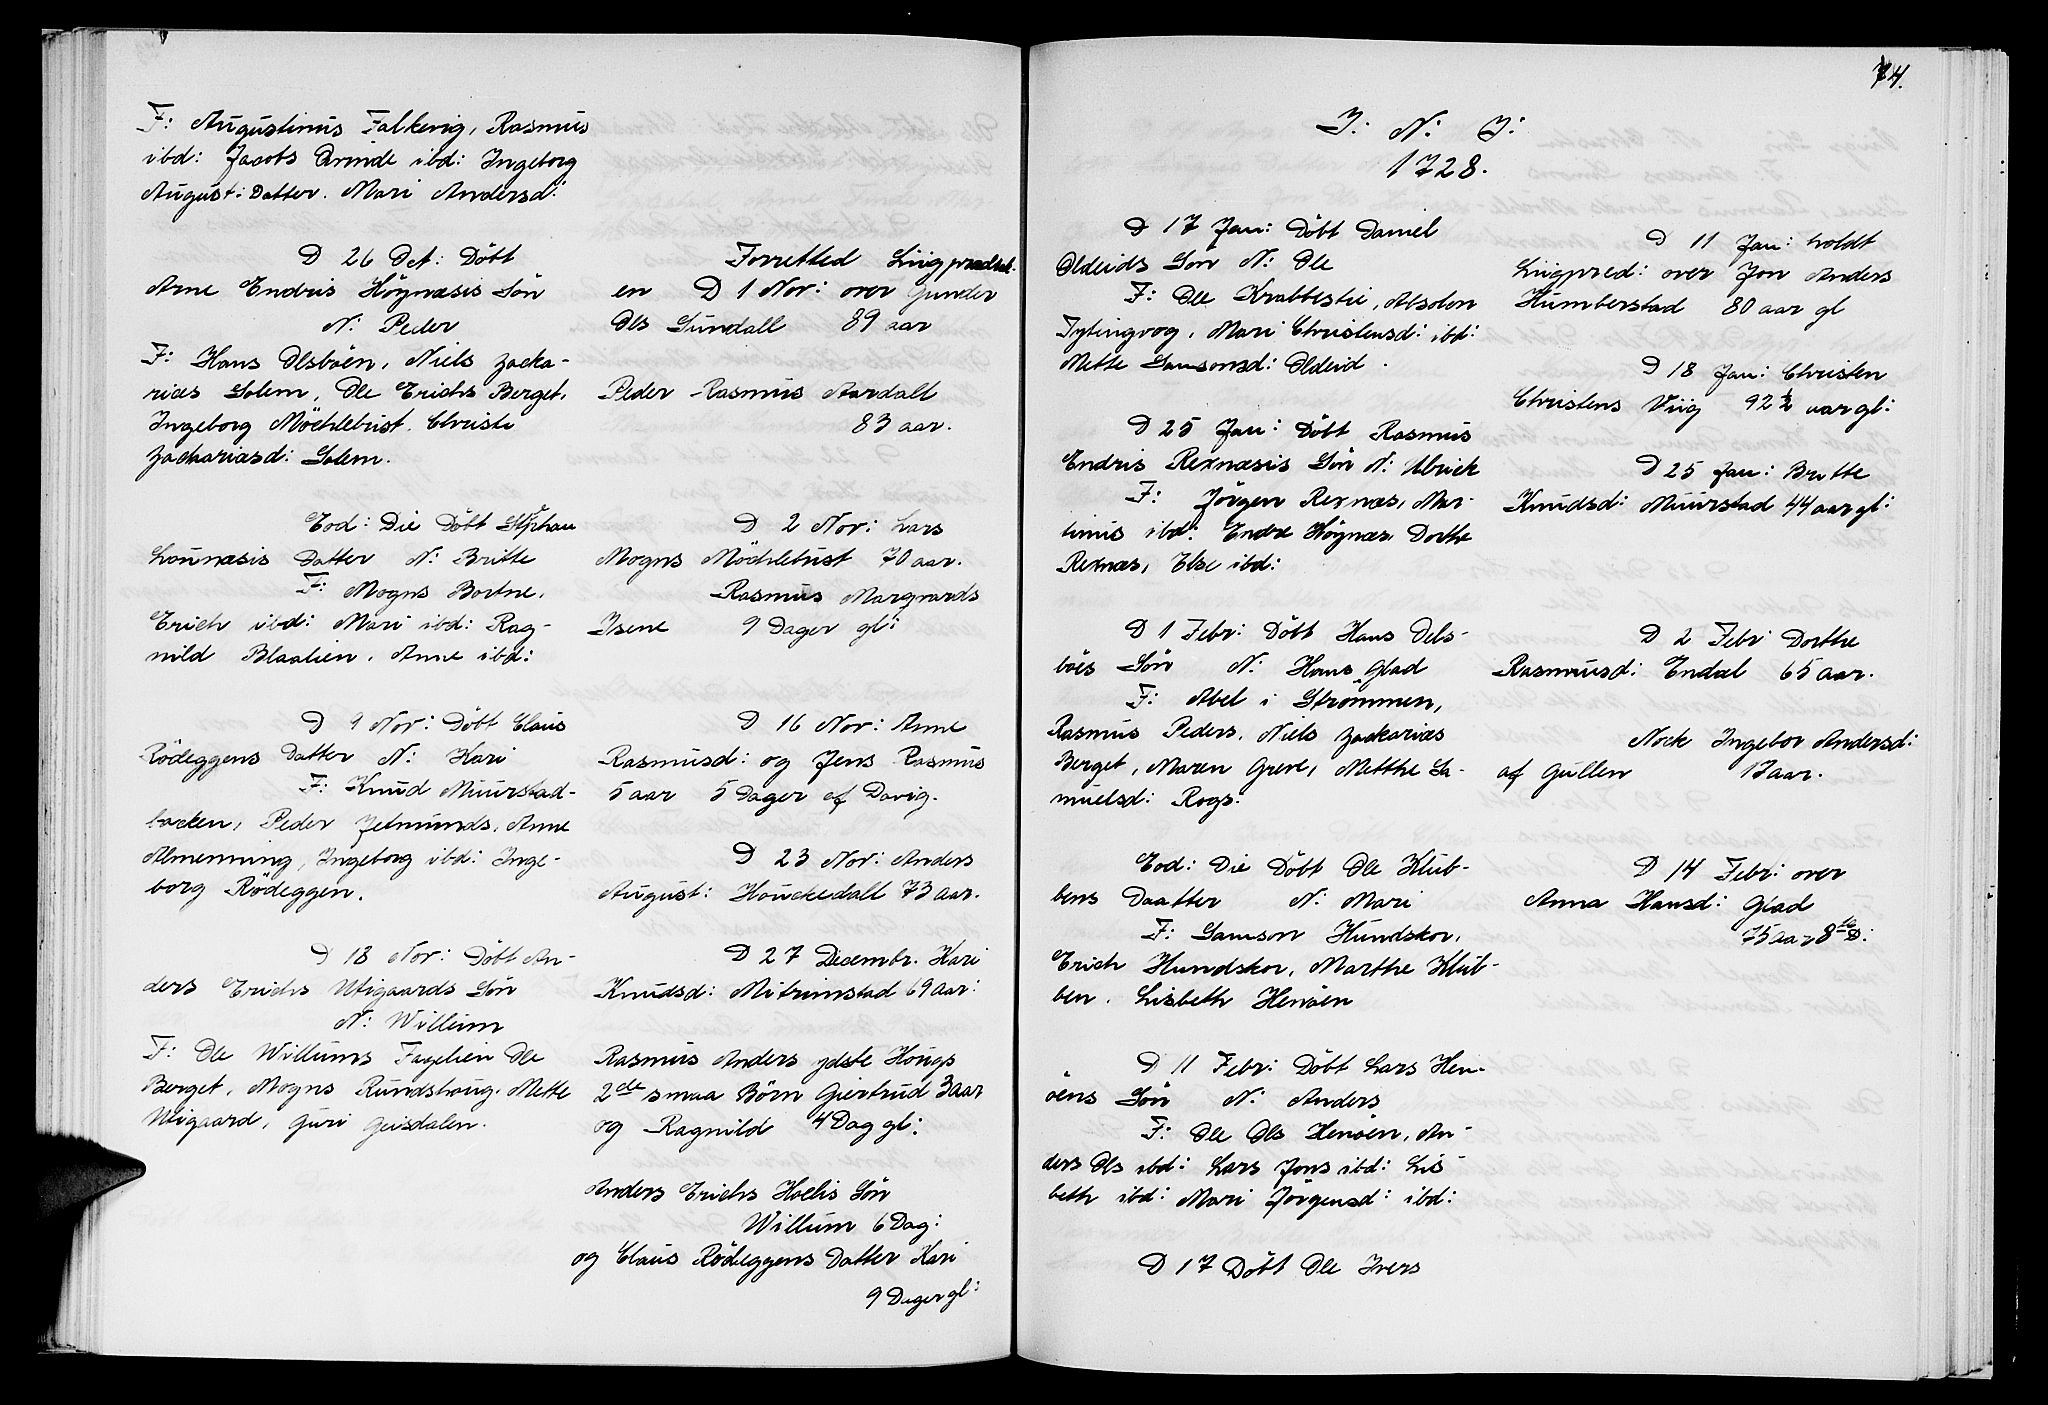 F: Augustinus Falkevig, Rasmus
ibd: Jacobs Qvinde ibd: Ingeborg
August: Datter. Mari Andersd:
D 26 Oct: Döbt
Arne Endris Högnæsis Sön
N: Peder
F: Hans Olsböen, Niels Zacka-
rias Solem, Ole Erichs Berget,
Ingeborg Möchlebust. Christi
Zackariasd: Solem.
Eod: Die Döbt Stephan
Lounæsis Datter N: Britte
F: Mogns Bortne,
Erich ibd: Mari ibd: Rag-
nild Blaalien. Anne ibd:
D 9 Nov: Döbt Claus
Rödeggens Datter N: Kari
F: Knud Muurstad-
backen, Peder Jetmunds, Anne
Almenning, Ingeborg ibd: Inge-
borg Rödeggen.
D 18 Nov: Döbt An-
ders Erichs Utigaards Sön
N: Willum
F: Ole Willums Fagelien Ole
Berget, Mogns Rundshaug. Mette
Utigaard, Guri Geisdalen.
Forretted Liigprædik.
en D 1 Nov: over Gunder
Ols Sundall 89 aar
Peder Rasmus Aardall
83 aar.
D 2 Nov: Lars
Mogns Möchlebust 70 aar.
Rasmus Marqvards
Isene 9 Dager gl:
D 16 Nov: Anne
Rasmusd: og Jens Rasmus
5 aar 5 Dager af Davig.
D 23 Nov: Anders
August: Houckedall 73 aar.
D 27 Decembr. Kari
Knudsd: Mitrumstad 69 aar:
Rasmus Anders ydste Hougs
2de smaa Börn Giertrud 3 aar
og Ragnild 4 Dag gl:
Anders Erichs Hollis Sön
Willum 6 Dag:
og Claus Rödeggens Datter Kari
9 Dager gl:
74.
I: N: J:
1728.
D 17 Jan: Döbt Daniel
Oldeids Sön N: Ole
F: Ole Krabbestie, Absolon
Tytingvog, Mari Christensd: ibd:
Mette Samsonsd: Oldeid.
D 25 Jan: Döbt Rasmus
Endris Rexnæsis Sön N: Ulrick
F: Jörgen Rexnæs, Mar-
tinus ibd: Endre Högnæs, Dorthe
Rexnæs, Else ibd:
D 1 Febr: Döbt Hans Oels-
böes Sön N: Hans Glad
F: Abel i Strömmen,
Rasmus Peders. Niels Zackarias
Berget, Maren Greve, Metthe Sa-
muelsd: Rogs:
Eod: Die Döbt Ole Klub-
bens Daatter N: Mari
F: Samson Hundskor,
Erich Hundskor, Marthe Klub-
ben. Lisbeth Henöen
D 11 Febr: Döbt Lars Hen-
öens Sön N: Anders
F: Ole Ols Henöen, An-
ders Ols ibd: Lars Jons ibd: Lis-
beth ibd: Mari Jörgensd: ibd:
D 17 Döbt Ole Ivers
D 11 Jan: holdt
Liigpred: over Jon Anders
Humberstad 80 aar gl
D 18 Jan: Christen
Christens Viig 92 ½ aar gl:
D 25 Jan: Britte
Knudsd: Muurstad 44 aar gl:
D 2 Febr Dorthe
Rasmusd: Endal 65 aar.
Nock Ingebor Andersd:
af Gullen 13 aar.
D 14 Febr: over
Anna Hansd: Glad
75 aar 8te D: